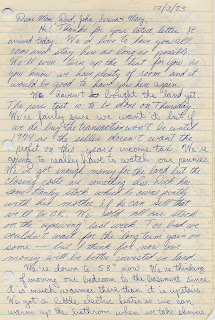 12/3/73
Dear Mom, Dad, John, Teresa & Mary,
Hi! Thanks for your latest letter. It
arrived today. We'd love to have you all
come and stay here as long as possible.
We'll even turn up the heat for you. As
you know we have plenty of room and it
would be good to have you here again.
We haven't bought the land yet.
The perc test is to be done on Thursday.
We're fairly sure we want it but if
we do buy the transaction won't be until
1974. The seller doesn't want the
profit on this year's income tax. We're
going to really have to watch our pennies.
We've got enough money for the land but the
closing costs are something else. Nick has
some family stock which he owns jointly
with his mother & if he can sell that
we'll be OK. We sold all our stock
on the upswing last week. Too bad we
couldn't wait for the long term gain on
some — but I think for now our
money will be better invested in land.
We're down to 58° now. We're thinking
of moving our bedroom to the basement since
it is much warmer than it is upstairs.
We got a little electric heater so we can
warm up the bathroom when we take showers.